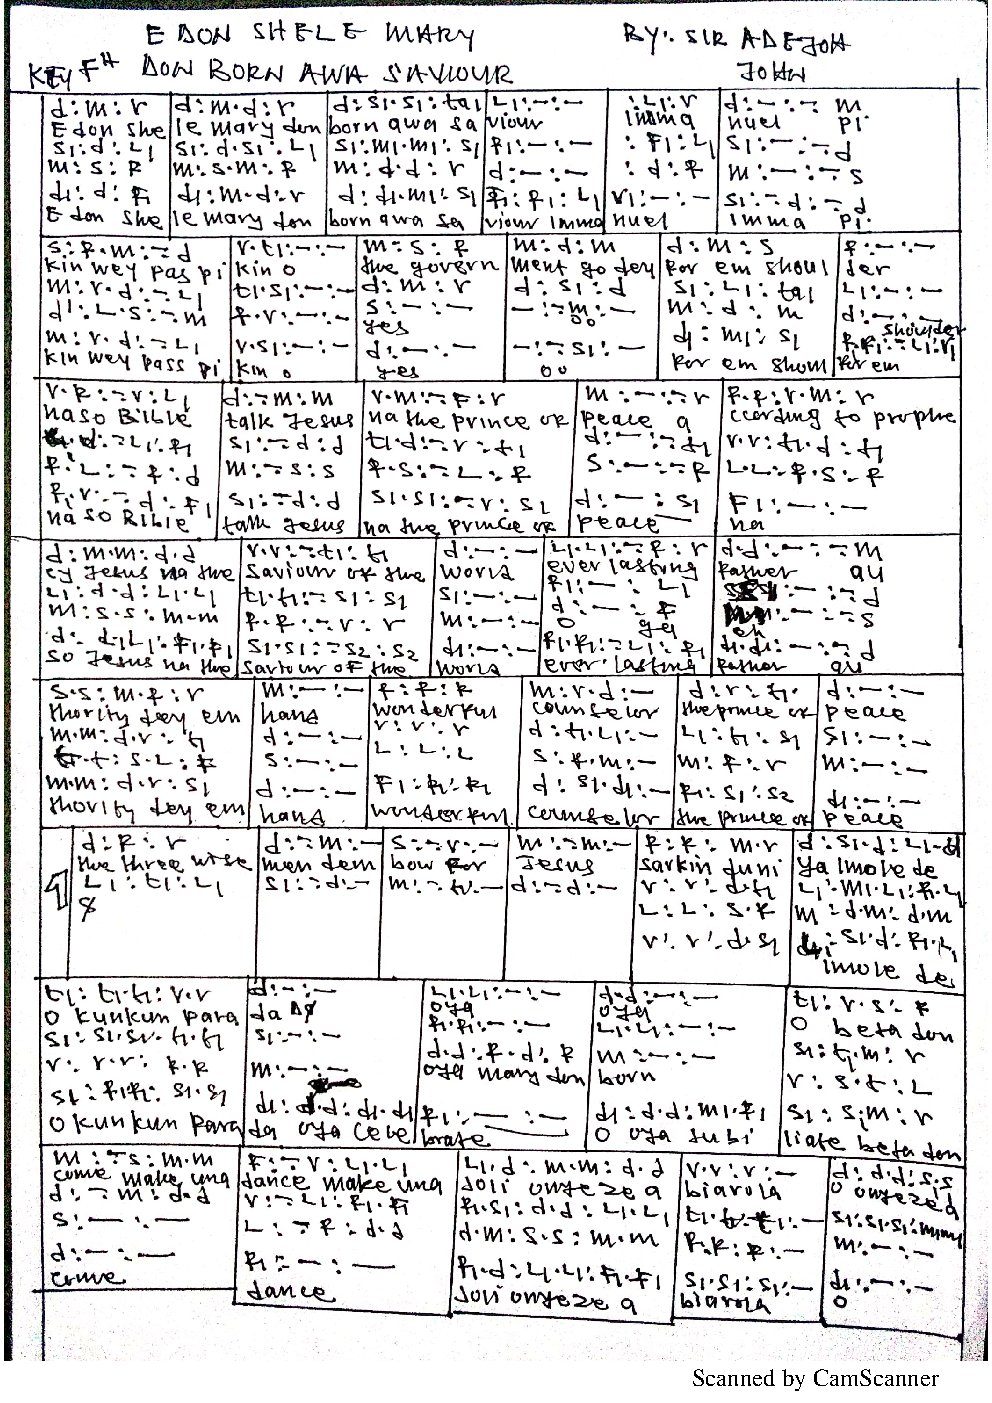 E DON SHELE MARY
BY: SIR ADEJOH
KEY F# DON BORN AWA SAVIOUR
JOHN
d:m:r | d:m.d:r | d:s1.s1:ta1 | L1:-:- | :L1:r | d:-:-:m
E don she | le mary don | born awa sa | viour | imma | nuel pi
s1:d:L1 | s1:d.s1:L1 | s1:m1.m1:s1 | f1:-:- | :F1:L1 | s1:-:-:d
m:s:f | m:s.m:f | m:d.d:r | d:-:- | :d:f | m:-:-:s
d1:d:f1 | d1:m.d:r | d:d1.m1:s1 | f1:f1:L1 | r1:-:- | s1:-:d:-:d
E don she | le mary don | born awa sa | viour imma | nuel | imma pi:
s:f.m:-:d | r.t1:-:- | m:s:f | m:d:m | d:m:s | f:-:-
kin wey pas pi | kin o | the govern | ment go dey | for em shoul | der
m:r.d:-:L1 | t1.s1:-:- | d:m:r | d:s1:d | s1:L1:ta1 | L1:-:-
d':L.s:-:m | f.r:-:- | s:-:- | -:-:m:- | m:d:m | d:-:-
yes | oo | shoulder
m:r.d:-:L1 | r.s1:-:- | d:-:- | -:-:s1:- | d1:m1:s1 | f.f1:-:L1:r1
kin wey pass pi | kin o | yes | oo | for em shoul | for em
r.f:-:r:L1 | d:-:m:m | r.m:-:f:r | m:-:-:r | f.f:r.m:r
na so Bible | talk Jesus | na the prince of | peace a | ccording to prophe
d:-:L1:f1 | s1:-:d:d | t1.d:-:r:t1 | d:-:-:t1 | r.r:t1.d:t1
f:L:-:f:d | m:-:s:s | f.s:-:L:f | s:-:-:f | L.L:f.s:f
f1.r:-:d:F1 | s1:-:d:d | s1.s1:-:r:s1 | d:-:-:s1 | F1:-:-
na so Bible | talk Jesus | na the prince of | peace | na
d:m.m:d.d | r.r:-:t1:t1 | d:-:- | L1.L1:-:f:r | d.d:-:-:m
cy Jesus na the | saviour of the | world | ever lasting | father au
L1:d.d:L1.L1 | t1.t1:-:s1:s1 | s1:-:- | f1:-:-:L1 | :-:-:d
m:s.s:m.m | f.f:-:r:r | m:-:- | d:-:-:f | :-:-:s
o ye | eh
d:d1.L1:F1.F1 | s1.s1:-:s2:s2 | d1:-:- | f1.f1:-:L1:f1 | d1.d1:-:-:d
so Jesus na the | saviour of the | world | ever lasting | father au
s.s:m.f:r | m:-:- | f:f:f | m:r.d:- | d:r:t1 | d:-:-
thority dey em | hand | wonderful | counselor | the prince of | peace
m.m:d.r:t1 | d:-:- | r:r:r | d:t1.L1:- | L1:t1:s1 | s1:-:-
t:s.L:f | s:-:- | L:L:L | s:f.m:- | m:f:r | m:-:-
m.m:d.r:s1 | d:-:- | F1:f1:f1 | d:s1.d1:- | f1:s1:s2 | d1:-:-
thority dey em | hand | wonderful | counselor | the prince of | peace
1 | d:f:r | d:-:m:- | s:-:r:- | m:-:m:- | f:f:m.r | d:s1.d:L1.d
the three wise | men dem | bow for | Jesus | sarkin duni | ya Imole de
L1:t1:L1 | s1:-:d:- | m:-:t1:- | d:-:d:- | r:r:d.t1 | L1:m1.L1:f1.L1
& | L:L:s.f | m:d.m:d.m
r':r':d.s1 | :s1.d:f1.L1
imole de
t1:t1.t1:r.r | d:-:- | L1.L1:-:- | d.d:-:- | t1:r.s:f
o kunkun para | da | oya | oya | o beta don
s1:s1.s1:t1.t1 | s1:-:- | f1.f1:-:- | L1.L1:-:- | s1:t1.m:r
r:r.r:f.f | m:-:- | d.d:f.d:f | m:-:- | r:s.t:L
oya mary don | born
s1:f1.f1:s1.s1 | d1:d.d:d1.d1 | f1:-:- | d1:d.d:m1.f1 | s1:s1.m:r
o kunkun para | da oya cele | brate | o oya jubi | liate beta don
m:-:s:m.m | f:-:r:L1.L1 | L1.d:m.m:d.d | r.r:r:- | d:d.d:s.s
come make una | dance make una | Joli onyeze a | biarola | o onyeze a
d:-:m:d.d | r:-:L1:f1.f1 | f1.s1:d.d:L1.L1 | t1.t1:t1:- | s1:s1.s1:m1.m1
s:-:- | L:-:f:d.d | d.m:s.s:m.m | f.f:f:- | m:-:-
d:-:- | f1:-:- | f1.d:L1.L1:F1.F1 | s1.s1:s1:- | d1:-:-
come | dance | Joli onyeze a | biarola | o
Scanned by CamScanner